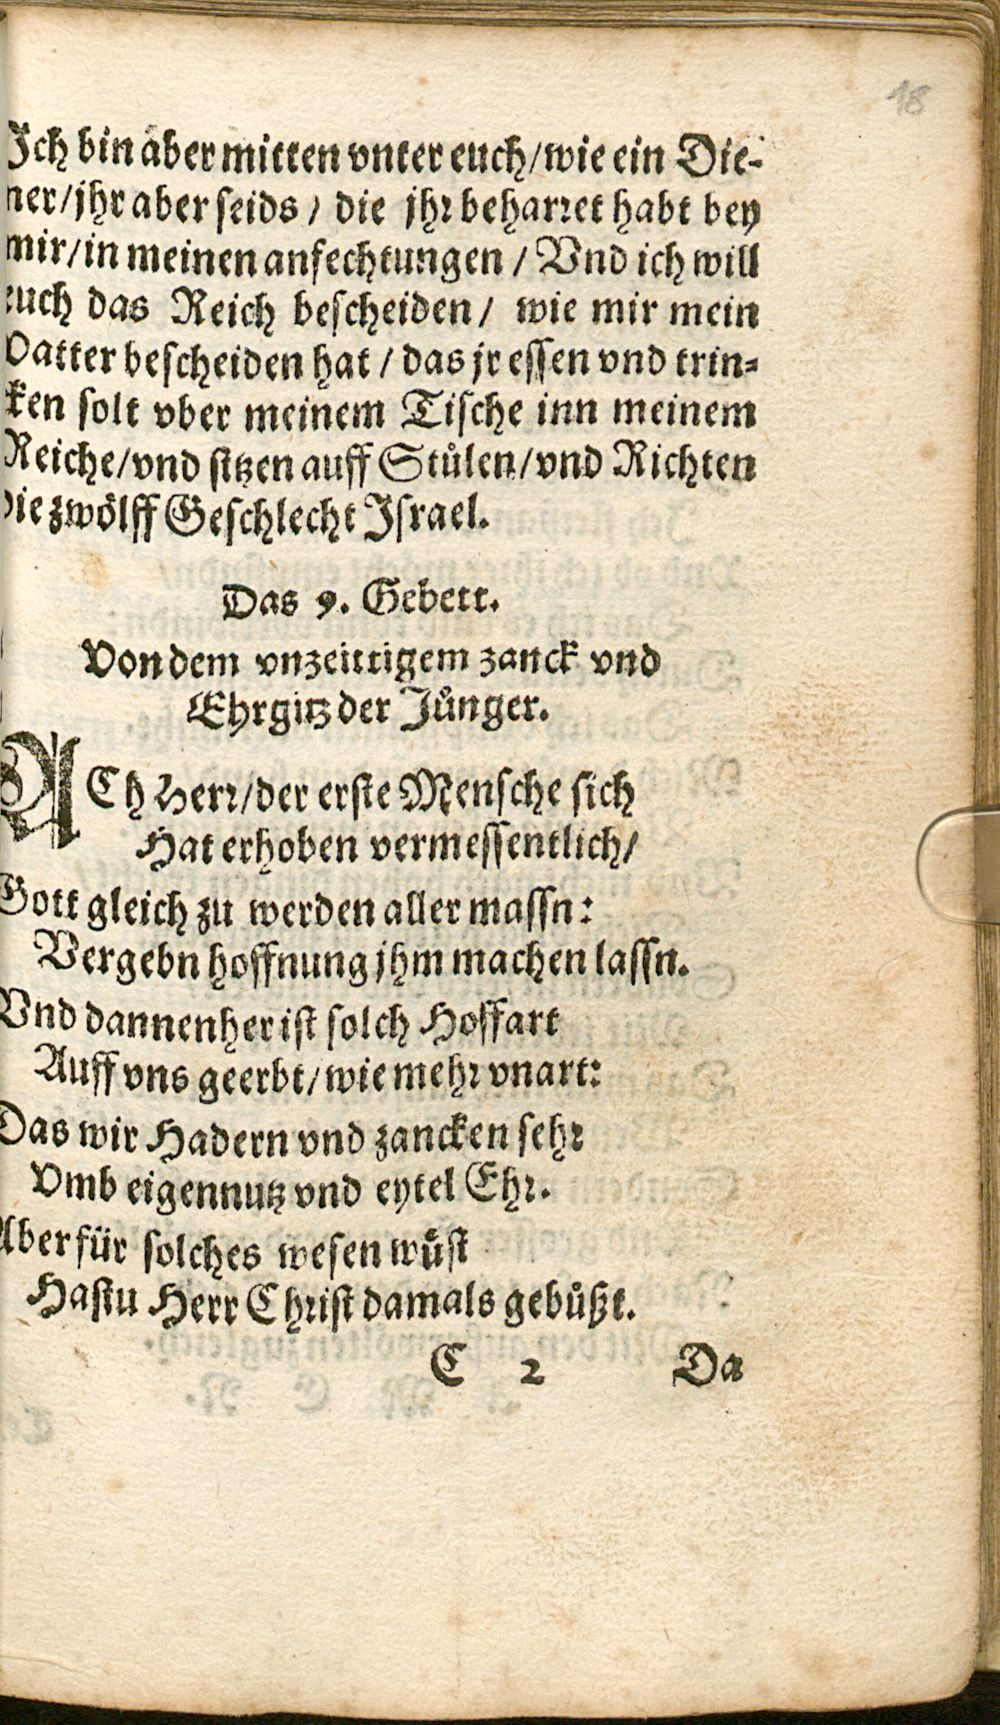 18
Ich bin aber mitten vnter euch/wie ein Die-
ner/jhr aber seids / die jhr beharret habt bey
mir/in meinen anfechtungen / Vnd ich will
euch das Reich bescheiden/ wie mir mein
Vatter bescheiden hat / das jr essen vnd trin-
cken solt vber meinem Tische inn meinem
Reiche/vnd sitzen auff Stůlen/vnd Richten
die zwölff Geschlecht Israel.
Das 9. Gebett.
Von dem vnzeittigem zanck vnd
Ehrgitz der Jůnger.
ACh Herr/der erste Mensche sich
Hat erhoben vermessentlich/
Gott gleich zu werden aller massn:
Vergebn hoffnung jhm machen lassn.
Vnd dannenher ist solch Hoffart
Auff vns geerbt/wie mehr vnart:
Das wir Hadern vnd zancken sehr
Vmb eigennutz vnd eytel Ehr.
Aber für solches wesen wůst
Hastu Herr Christ damals gebůßt.
C 2 Da